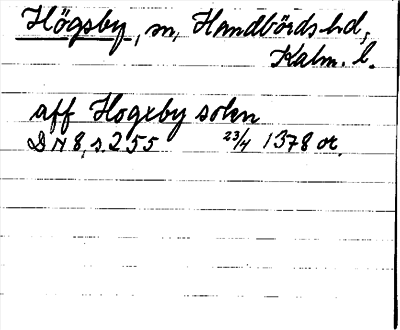 Högsby, sn, Handbörds hd,
Kalm. l.
aff Hogxby sokn
DN 8, s. 255 23/4 1378 or.